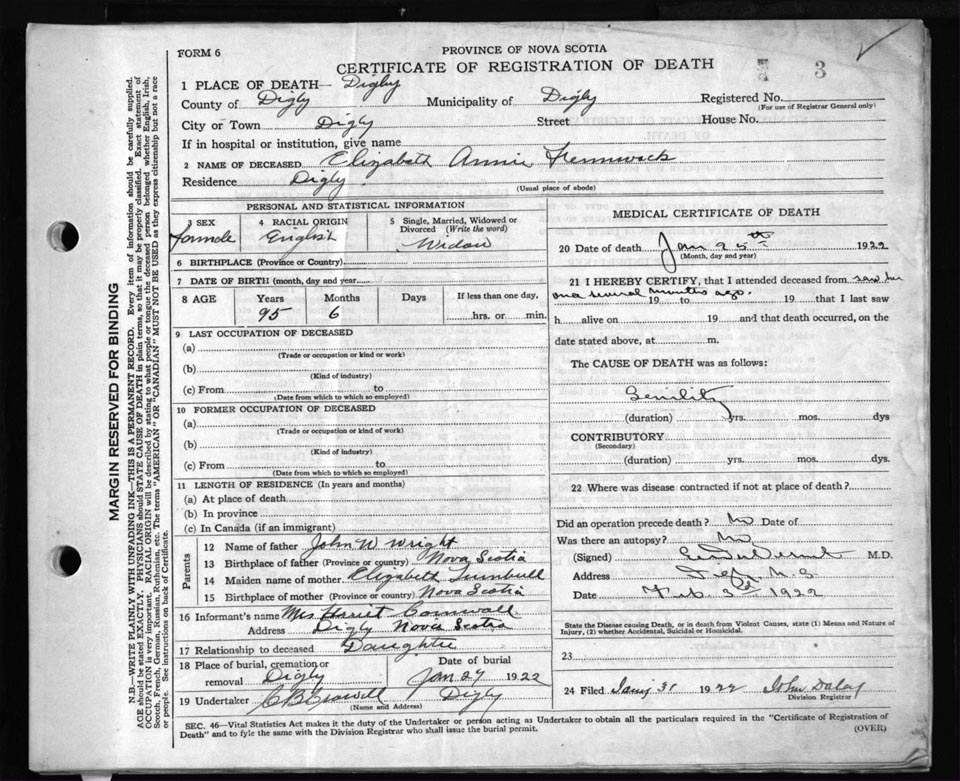 FORM 6
PROVINCE OF NOVA SCOTIA
CERTIFICATE OF REGISTRATION OF DEATH
3
1 PLACE OF DEATH— Digby
County of Digby Municipality of Digby Registered No.
(For use of Registrar General only)
City or Town Digby Street House No.
If in hospital or institution, give name
2 NAME OF DECEASED Elizabeth Annie
Residence Digby
(Usual place of abode)
PERSONAL AND STATISTICAL INFORMATION
3 SEX 4 RACIAL ORIGIN 5 Single, Married, Widowed or Divorced (Write the word)
female English Widow
6 BIRTHPLACE (Province or Country)
7 DATE OF BIRTH (month, day and year)
8 AGE Years Months Days If less than one day,
95 6 hrs. or min.
9 LAST OCCUPATION OF DECEASED
(a)
(Trade or occupation or kind or work)
(b)
(Kind of industry)
(c) From to
(Date from which to which so employed)
10 FORMER OCCUPATION OF DECEASED
(a)
(Trade or occupation or kind of work)
(b)
(Kind of industry)
(c) From to
(Date from which to which so employed)
11 LENGTH OF RESIDENCE (In years and months)
(a) At place of death
(b) In province
(c) In Canada (if an immigrant)
Parents
12 Name of father John W Wright
13 Birthplace of father (Province or country) Nova Scotia
14 Maiden name of mother Elizabeth Turnbull
15 Birthplace of mother (Province or country) Nova Scotia
16 Informant's name Mrs Harriet Cornwall
Address Digby Nova Scotia
17 Relationship to deceased Daughter
18 Place of burial, cremation or removal Digby Date of burial Jan 27 1922
19 Undertaker Digby
(Name and Address)
MEDICAL CERTIFICATE OF DEATH
20 Date of death Jan 25th 1922
(Month, day and year)
21 I HEREBY CERTIFY, that I attended deceased from saw her
once several months ago. 19 to 19 that I last saw
h alive on 19 and that death occurred, on the
date stated above, at m.
The CAUSE OF DEATH was as follows:
Senility
(duration) yrs. mos. dys
CONTRIBUTORY
(Secondary)
(duration) yrs. mos. dys.
22 Where was disease contracted if not at place of death?
Did an operation precede death? No Date of
Was there an autopsy? No
(Signed) M.D.
Address N.S.
Date Feb. 3d 1922
State the Disease causing Death, or in death from Violent Causes, state (1) Means and Nature of Injury, (2) whether Accidental, Suicidal or Homicidal.
23
24 Filed Jany 31 1922 John Daley
Division Registrar
SEC. 46—Vital Statistics Act makes it the duty of the Undertaker or person acting as Undertaker to obtain all the particulars required in the "Certificate of Registration of
Death" and to fyle the same with the Division Registrar who shall issue the burial permit. (OVER)
MARGIN RESERVED FOR BINDING
N.B.—WRITE PLAINLY WITH UNFADING INK—THIS IS A PERMANENT RECORD. Every item of information should be carefully supplied.
AGE should be stated EXACTLY. PHYSICIANS should STATE CAUSE OF DEATH in plain terms, so that it may be properly classified. Exact statement of
OCCUPATION is very important. RACIAL ORIGIN will be described by stating to what people or tongue the deceased person belonged whether English, Irish,
Scotch, French, German, Russian, Ruthenian, etc. The terms "AMERICAN" OR "CANADIAN" MUST NOT BE USED as they express citizenship but not a race
or people. See instructions on back of Certificate.